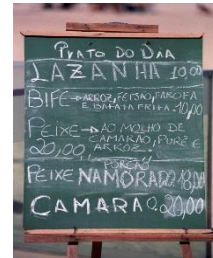 PRATO DO DIA
LAZANHA 10,00
BIFE→ARROZ, FEIJÃO, FAROFA
E BATATA FRITA. 10,00
PEIXE→AO MOLHO DE
CAMARÃO, PURÊ E
20,00, ARROZ.
PEIXE NAMORADO 18,00
CAMARAO. 20,00